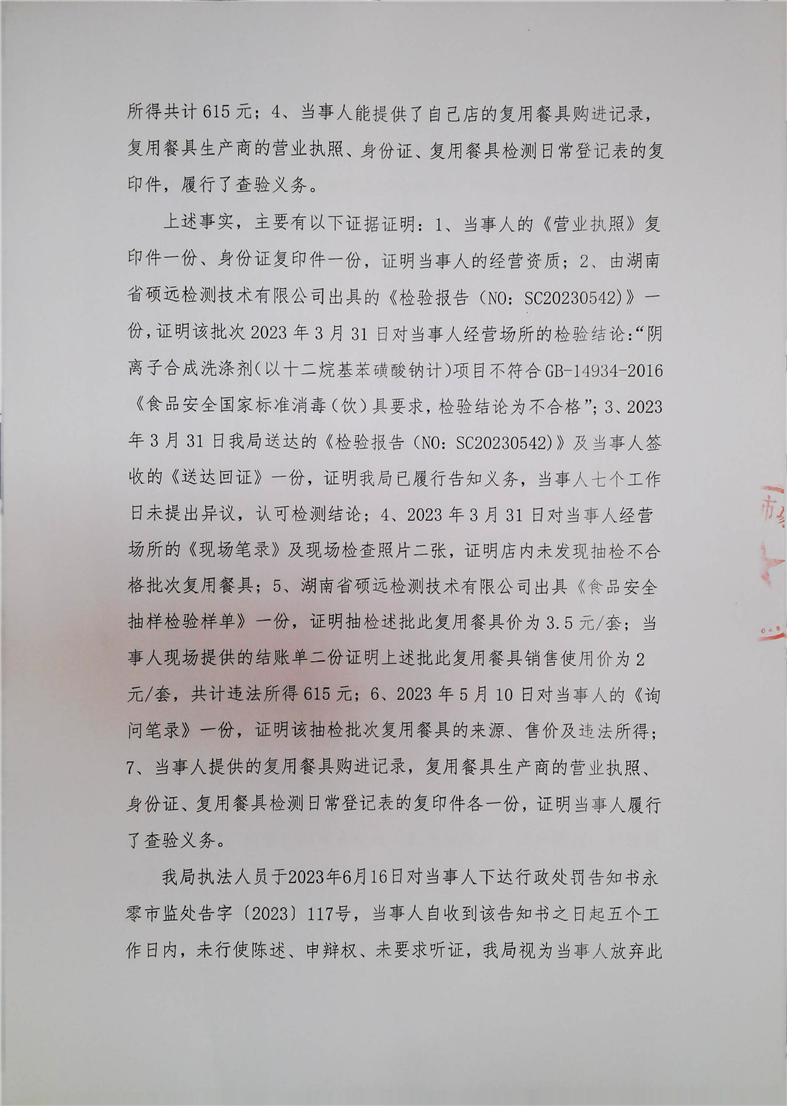 所得共计 615 元；4、当事人能提供了自己店的复用餐具购进记录，
复用餐具生产商的营业执照、身份证、复用餐具检测日常登记表的复
印件，履行了查验义务。
上述事实，主要有以下证据证明：1、当事人的《营业执照》复
印件一份、身份证复印件一份，证明当事人的经营资质；2、由湖南
省硕远检测技术有限公司出具的《检验报告（NO：SC20230542)》一
份，证明该批次 2023 年 3 月 31 日对当事人经营场所的检验结论：“阴
离子合成洗涤剂（以十二烷基苯磺酸钠计）项目不符合 GB-14934-2016
《食品安全国家标准消毒（饮）具要求，检验结论为不合格”；3、2023
年 3 月 31 日我局送达的《检验报告（NO：SC20230542)》及当事人签
收的《送达回证》一份，证明我局已履行告知义务，当事人七个工作
日未提出异议，认可检测结论；4、2023 年 3 月 31 日对当事人经营
场所的《现场笔录》及现场检查照片二张，证明店内未发现抽检不合
格批次复用餐具；5、湖南省硕远检测技术有限公司出具《食品安全
抽样检验样单》一份，证明抽检述批此复用餐具价为 3.5 元/套；当
事人现场提供的结账单二份证明上述批此复用餐具销售使用价为 2
元/套，共计违法所得 615 元；6、2023 年 5 月 10 日对当事人的《询
问笔录》一份，证明该抽检批次复用餐具的来源、售价及违法所得；
7、当事人提供的复用餐具购进记录，复用餐具生产商的营业执照、
身份证、复用餐具检测日常登记表的复印件各一份，证明当事人履行
了查验义务。
我局执法人员于2023年6月16日对当事人下达行政处罚告知书永
零市监处告字〔2023〕117号，当事人自收到该告知书之日起五个工
作日内，未行使陈述、申辩权、未要求听证，我局视为当事人放弃此
市